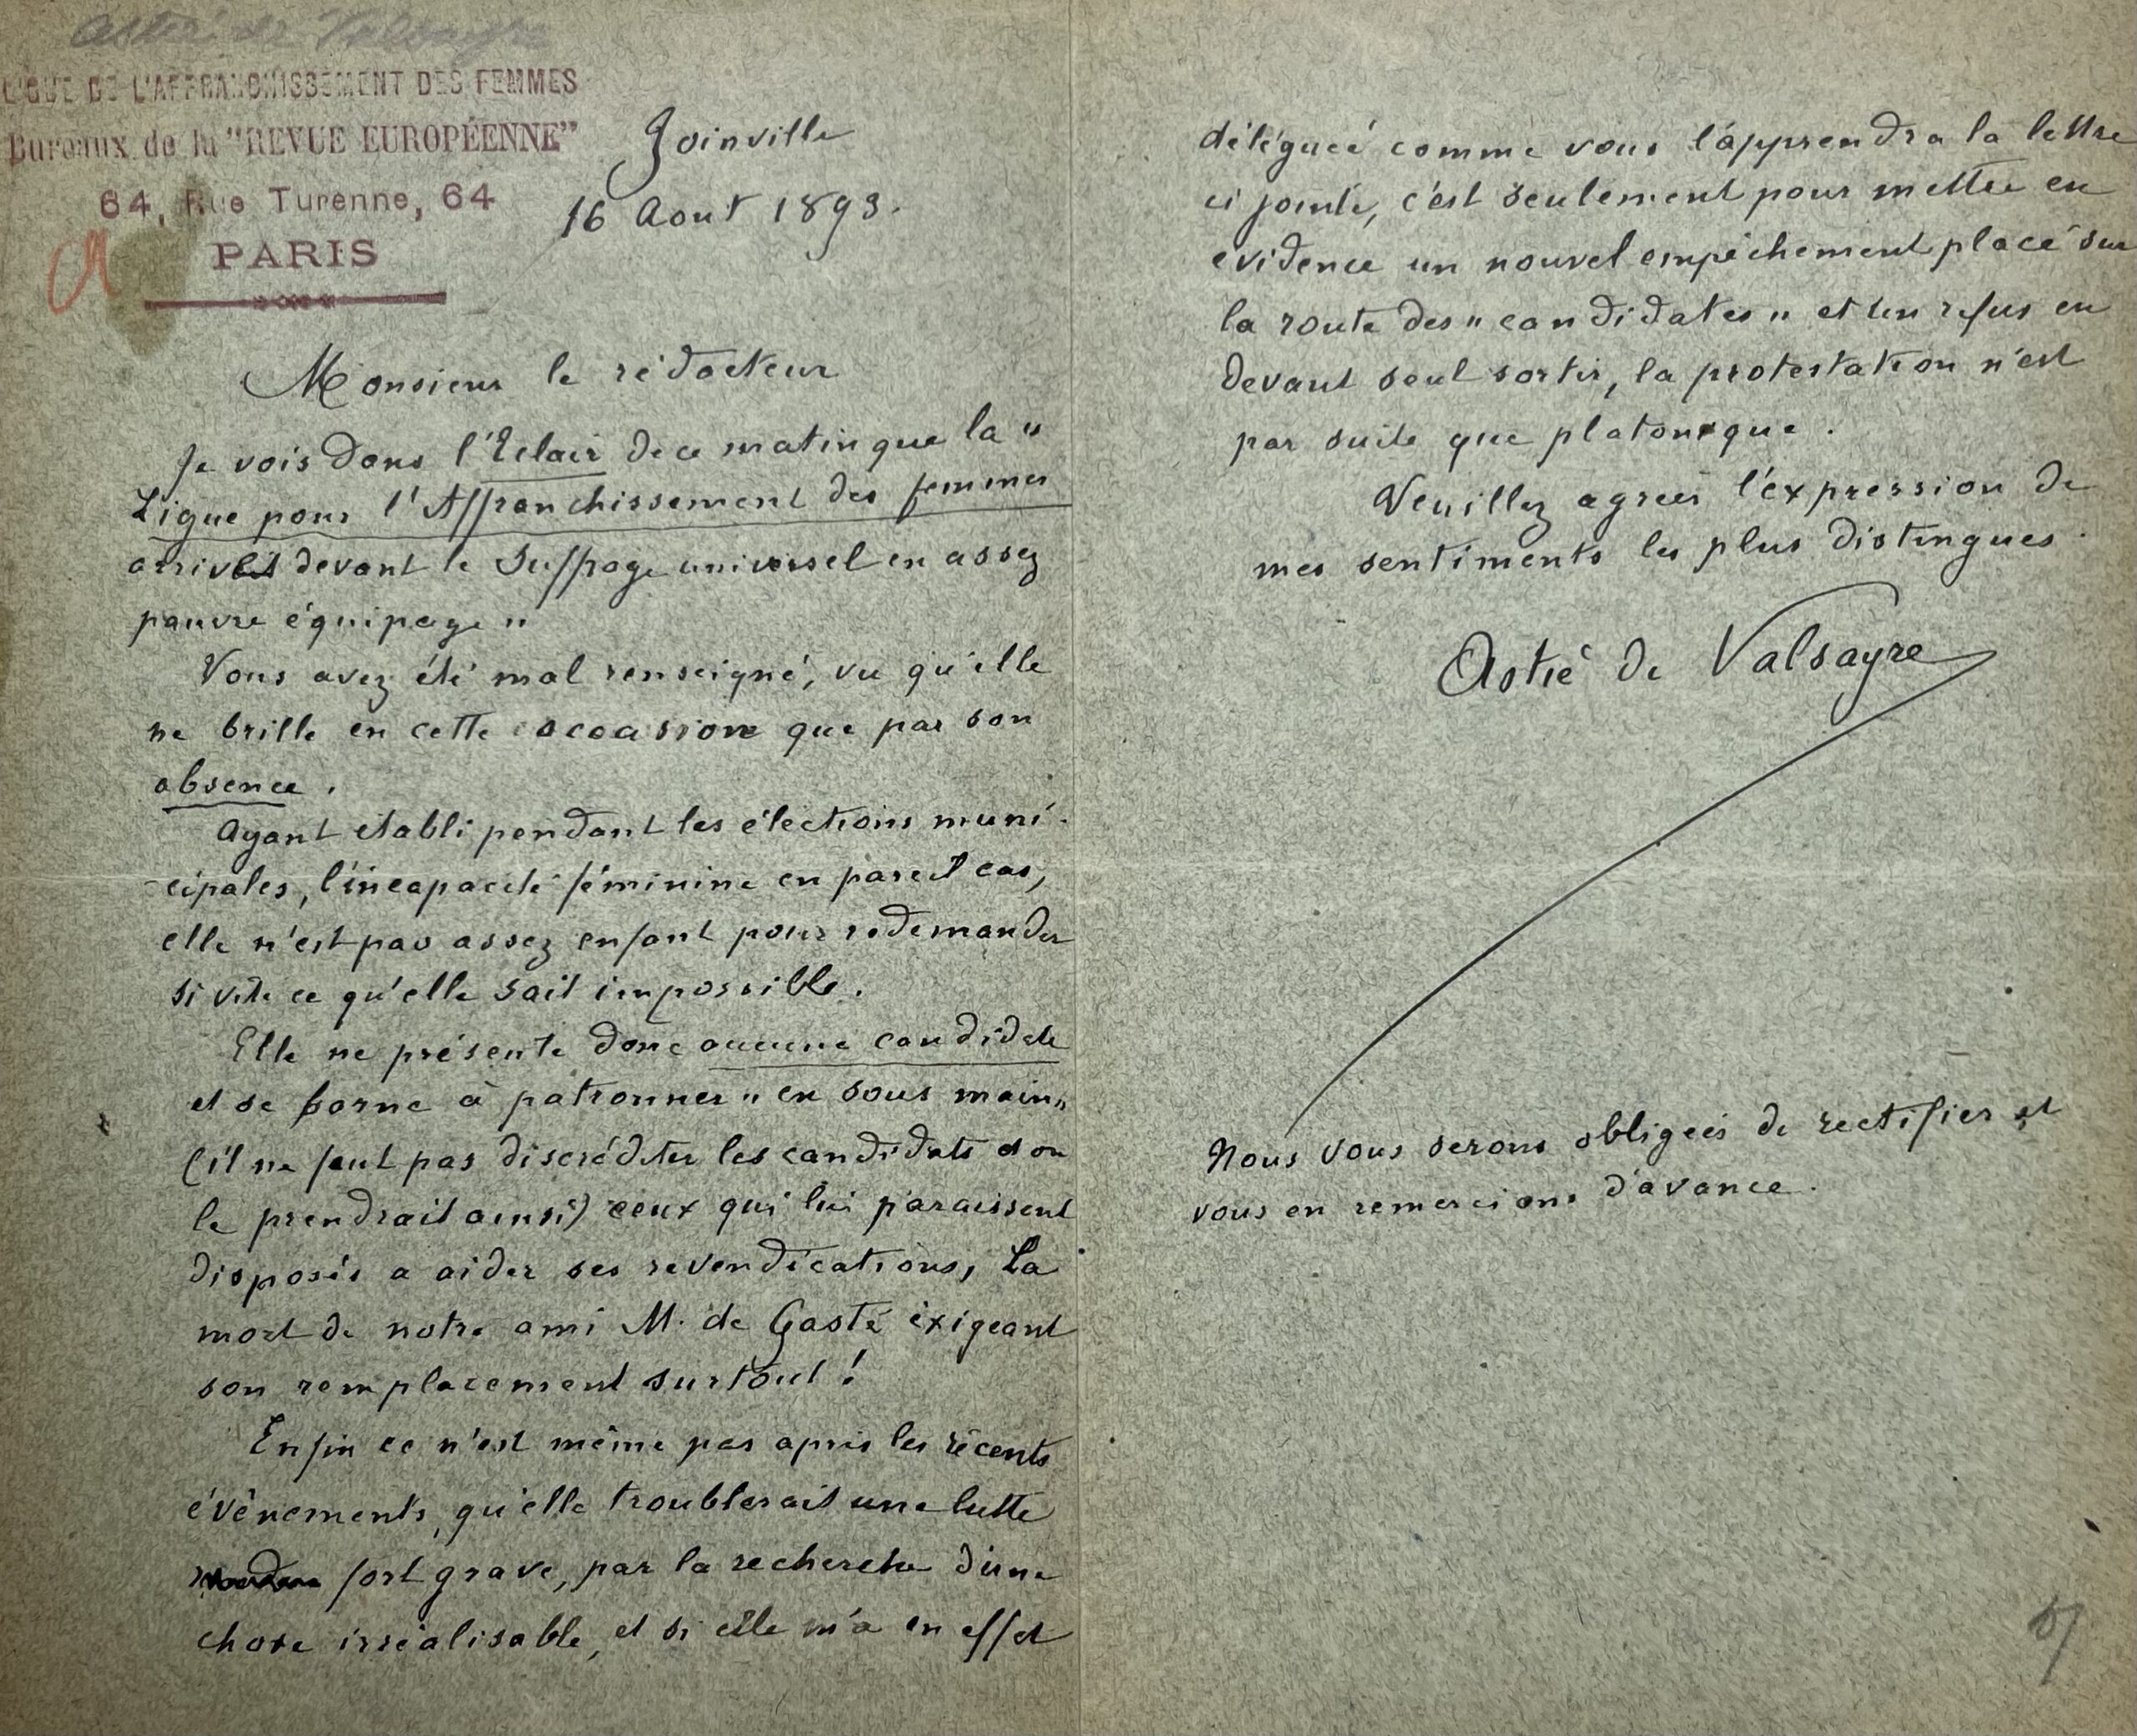 Astié de Valsayre
LIGUE DE L'AFFRANCHISSEMENT DES FEMMES
Bureaux de la "REVUE EUROPÉENNE"
64, Rue Turenne, 64
PARIS
Joinville
16 Aout 1893.
Monsieur le rédacteur
Je vois dans l'Eclair de ce matin que la "
Ligue pour l'Affranchissement des femmes
arrive devant le Suffrage universel en assez
pauvre équipage "
Vous avez été mal renseigné, vu qu'elle
ne brille en cette occasion que par son
absence.
Ayant etabli pendant les élections muni-
cipales, l'incapacité féminine en pareil cas,
elle n'est pas assez enfant pour redemander
si vite ce qu'elle sait impossible.
Elle ne présente donc aucune candidate
et se borne à patronner " en sous main "
(il ne faut pas discréditer les candidats et on
le prendrait ainsi) ceux qui lui paraissent
disposés a aider ses revendications, La
mort de notre ami M. de Gasté éxigeant
son remplacement surtout !
Enfin ce n'est même pas après les récents
évènements, qu'elle troublerait une lutte
fort grave, par la recherche d'une
chose irréalisable, et si elle m'a en effet
déléguée comme vous l'apprendra la lettre
ci jointe, c'est seulement pour mettre en
evidence un nouvel empêchement placé sur
la route des " candidates " et un refus en
devant seul sortir, la protestation n'est
par suite que platonique.
Veuillez agréer l'éxpression de
mes sentiments les plus distingues.
Astié de Valsayre
Nous vous serons obligées de rectifier et
vous en remercions d'avance.